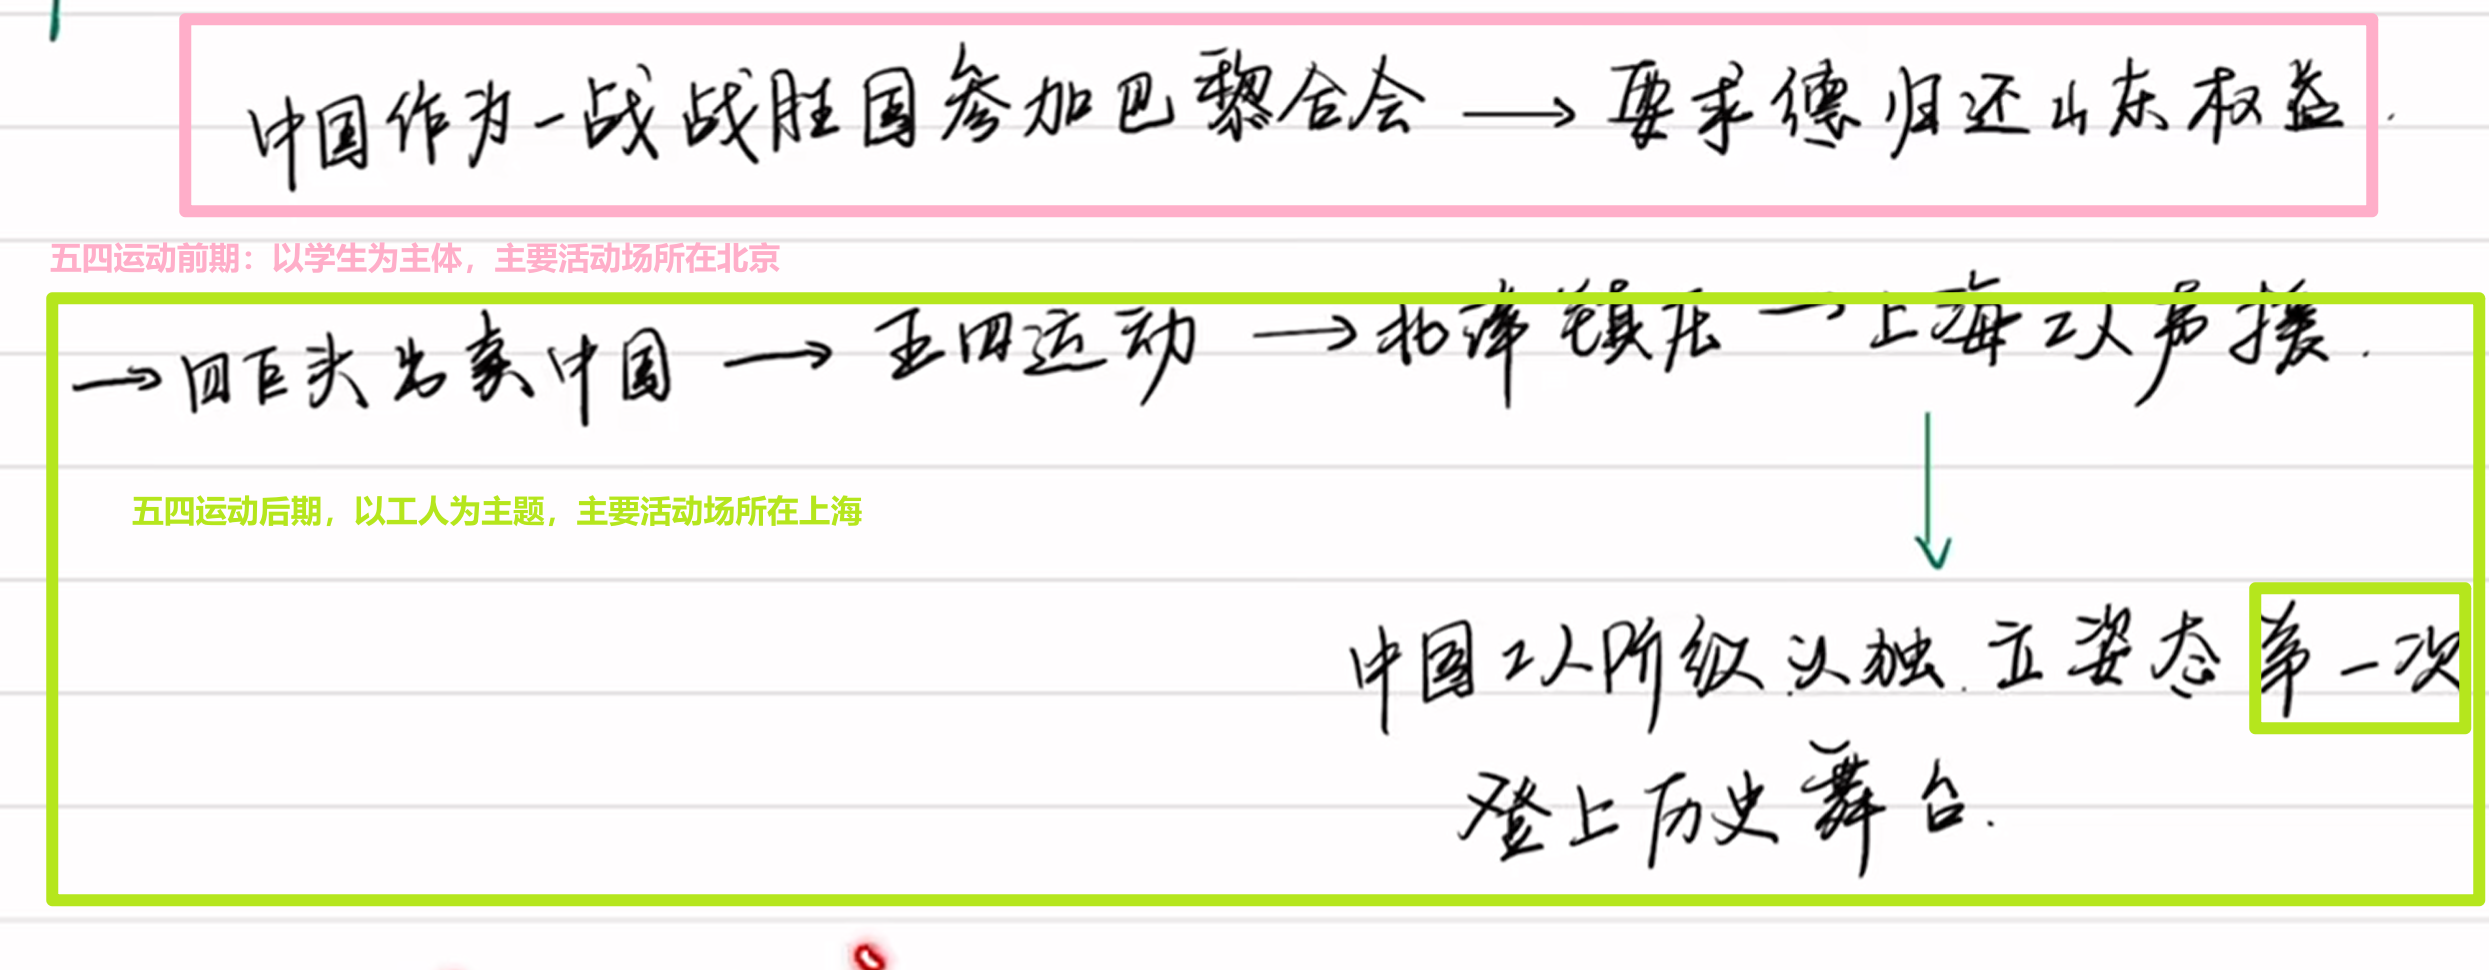 中国作为一战战胜国参加巴黎合会→要求德归还山东权益.
五四运动前期：以学生为主体，主要活动场所在北京
→四巨头出卖中国→五四运动→北洋镇压→上海工人声援.
五四运动后期，以工人为主题，主要活动场所在上海
中国工人阶级以独立姿态第一次
登上历史舞台.